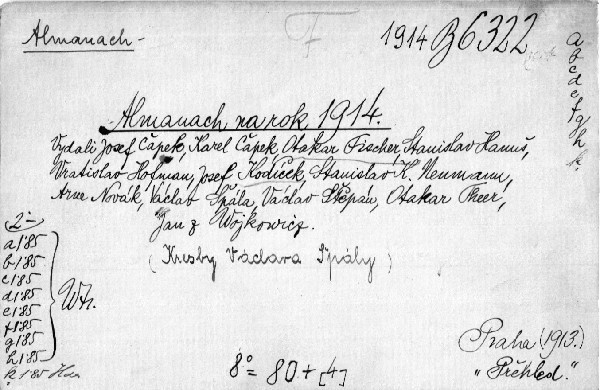 Almanach -
1914 B 6322
a
b
c
d
e
f
g
h
k.
Almanach na rok 1914.
Vydali Josef Čapek, Karel Čapek, Otakar Fischer, Stanislav Hanuš,
Vratislav Hofman, Josef Kodíček, Stanislav K. Neumann,
Arne Novák, Václav Špála, Václav Štěpán, Otakar Theer,
Jan z Wojkowicz.
(Kresby Václava Špály)
2 -
a 1'85
b 1'85
c 1'85
d 1'85
e 1'85
f 1'85
g 1'85
h 1'85
k 1'85
Praha (1913.)
„Přehled."
8° = 80 + [4]